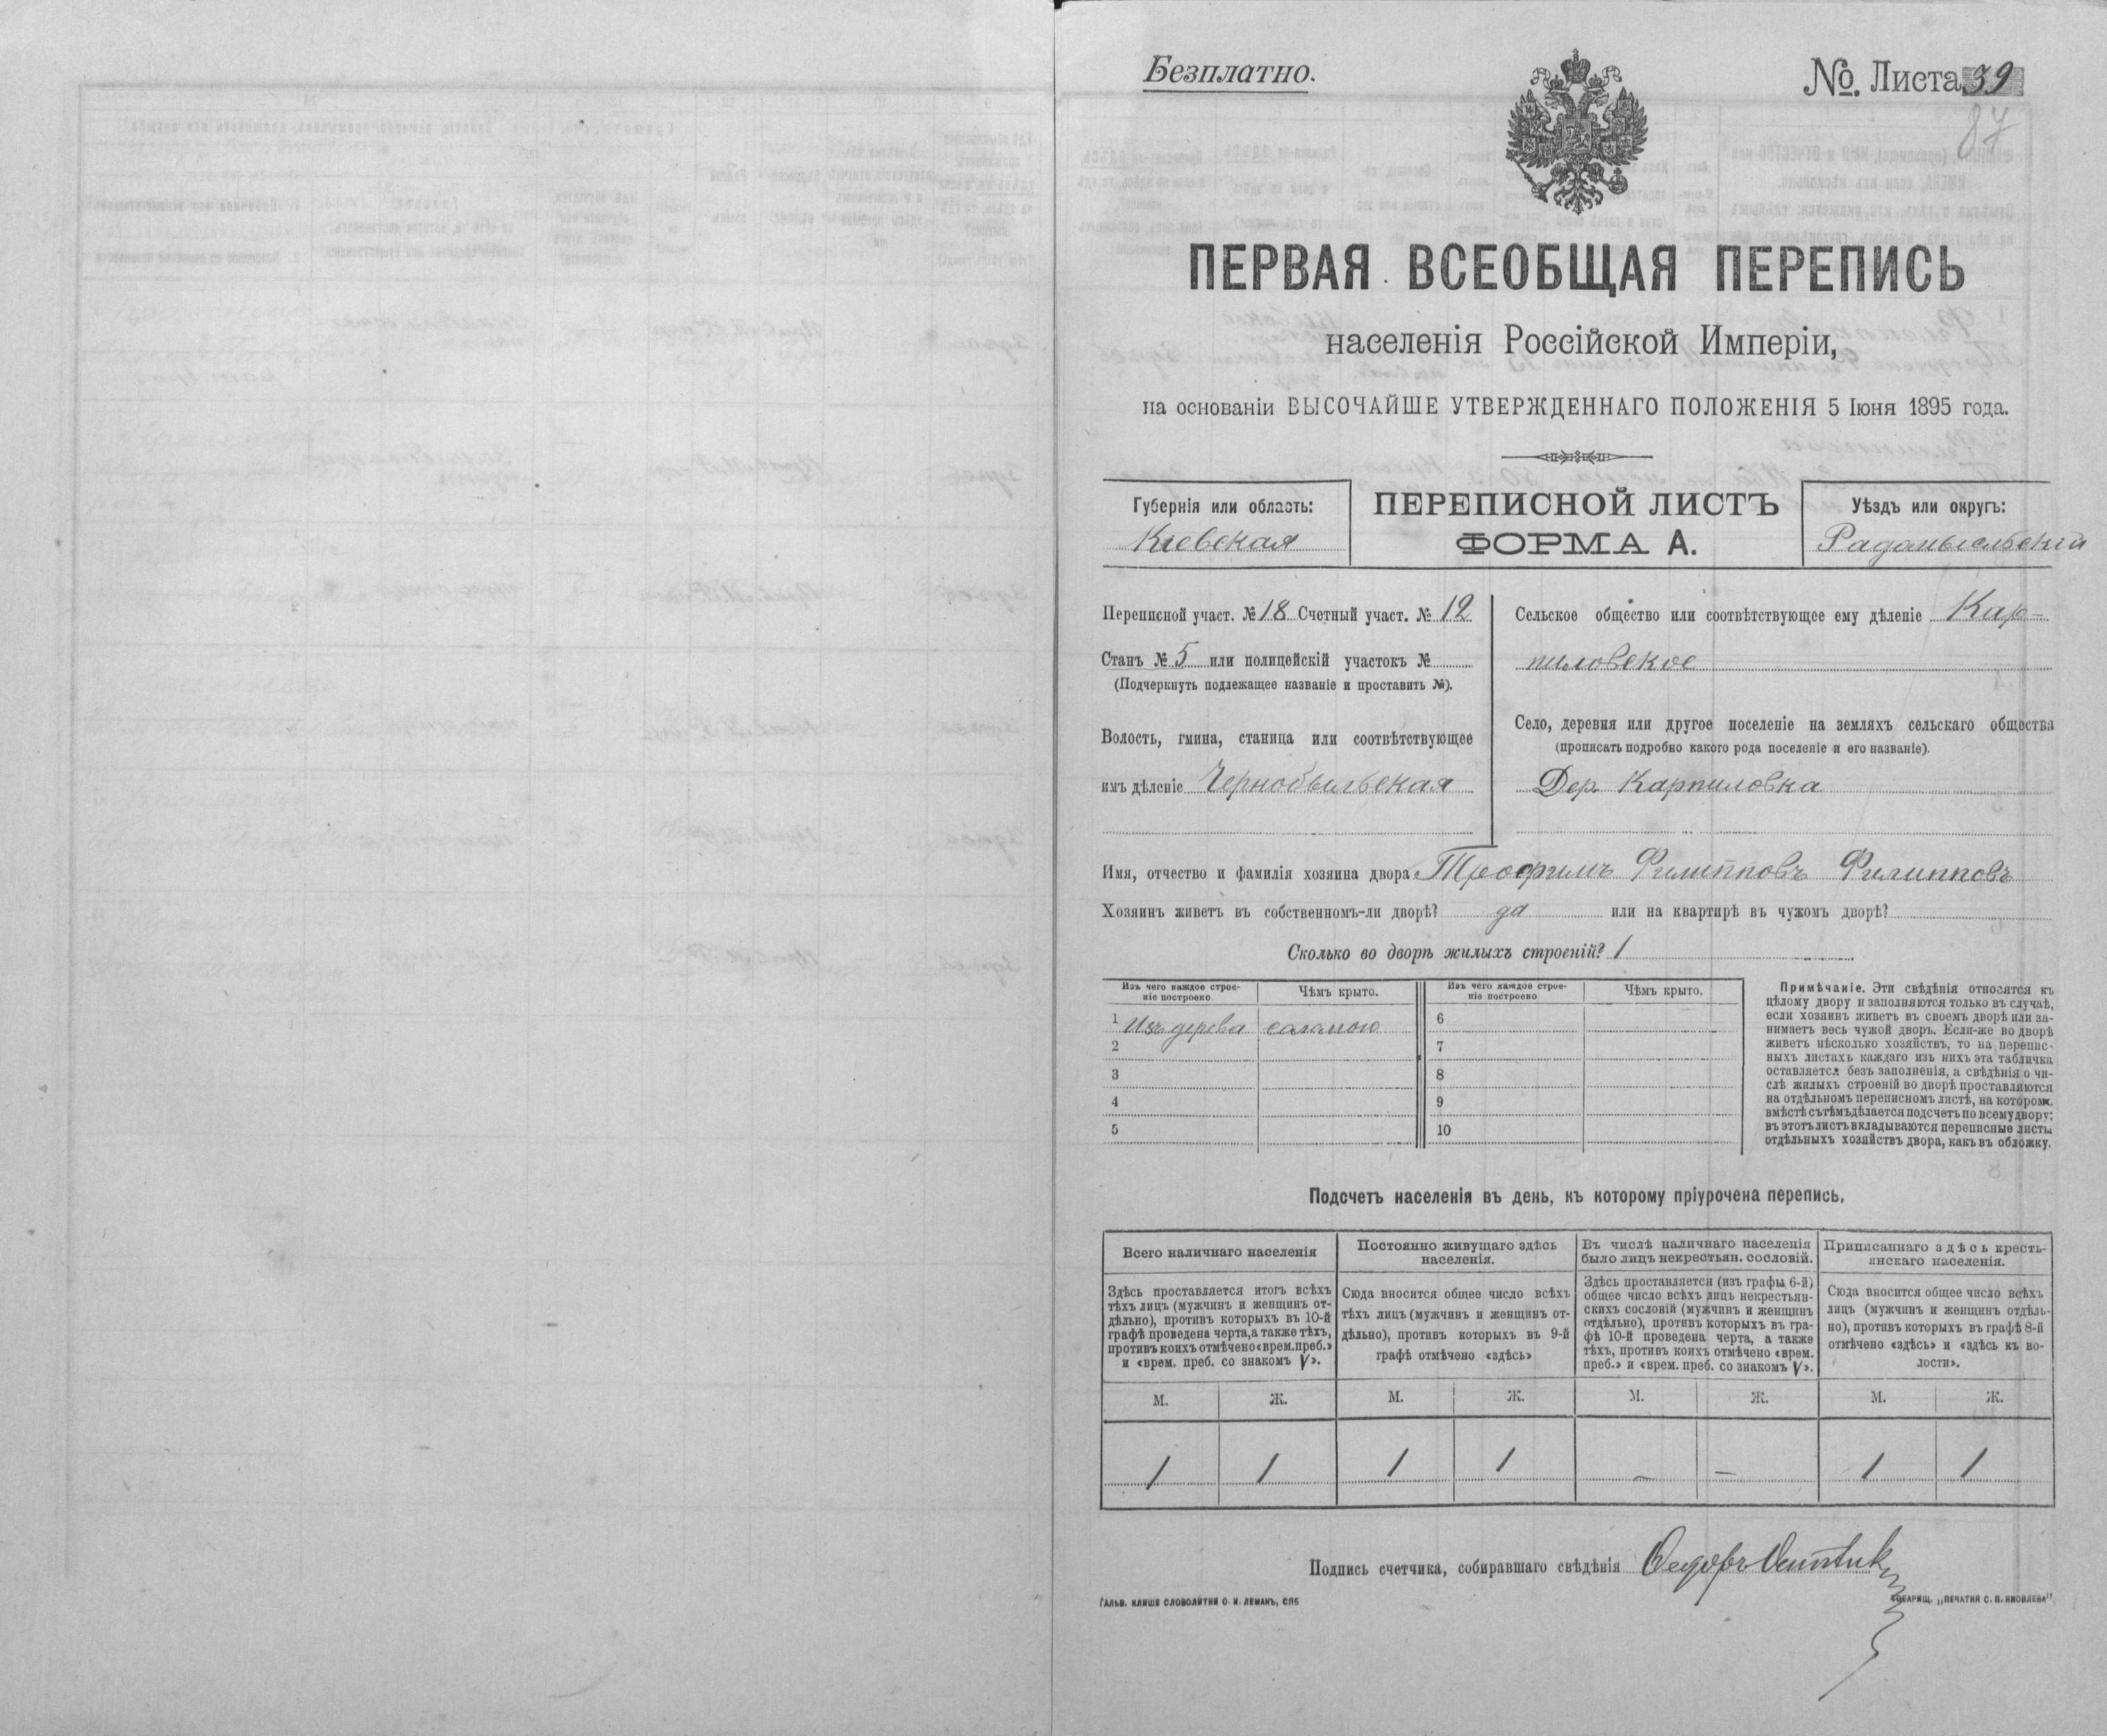 Безплатно.
№. Листа 39
87
ПЕРВАЯ ВСЕОБЩАЯ ПЕРЕПИСЬ
населенія Россійской Имперіи,
на основаніи ВЫСОЧАЙШЕ УТВЕРЖДЕННАГО ПОЛОЖЕНІЯ 5 Іюня 1895 года.
Губернія или область:
Кіевская
ПЕРЕПИСНОЙ ЛИСТЪ
ФОРМА А.
Уѣздъ или округъ:
Радомысльскій
Переписной участ. № 18 Счетный участ. № 12
Станъ № 5 или полицейскій участокъ №
(Подчеркнуть подлежащее названіе и проставить №).
Волость, гмина, станица или соотвѣтствующее
имъ дѣленіе Чернобыльская
Сельское общество или соотвѣтствующее ему дѣленіе Кар-
пиловское
Село, деревня или другое поселеніе на земляхъ сельскаго общества
(прописать подробно какого рода поселеніе и его названіе).
Дер. Карпиловка
Имя, отчество и фамилія хозяина двора Трофимъ Филипповъ Филипповъ
Хозяинъ живетъ въ собственномъ-ли дворѣ? да или на квартирѣ въ чужомъ дворѣ?
Сколько во дворѣ жилыхъ строеній? 1
Изъ чего каждое строе-
ніе построено
Чѣмъ крыто.
Изъ чего каждое строе-
ніе построено
Чѣмъ крыто.
1 Изъ дерева саламою 6
2 7
3 8
4 9
5 10
Примѣчаніе. Эти свѣдѣнія относятся къ
цѣлому двору и заполняются только въ случаѣ,
если хозяинъ живетъ въ своемъ дворѣ или за-
нимаетъ весь чужой дворъ. Если-же во дворѣ
живетъ нѣсколько хозяйствъ, то на перепис-
ныхъ листахъ каждаго изъ нихъ эта табличка
оставляется безъ заполненія, а свѣдѣнія о чи-
слѣ жилыхъ строеній во дворѣ проставляются
на отдѣльномъ переписномъ листѣ, на которомъ
вмѣстѣ съ тѣмъ дѣлается подсчетъ по всему двору;
въ этотъ листъ вкладываются переписные листы
отдѣльныхъ хозяйствъ двора, какъ въ обложку.
Подсчетъ населенія въ день, къ которому пріурочена перепись.
Всего наличнаго населенія
Здѣсь проставляется итогъ всѣхъ
тѣхъ лицъ (мужчинъ и женщинъ от-
дѣльно), противъ которыхъ въ 10-й
графѣ проведена черта, а также тѣхъ,
противъ коихъ отмѣчено «врем. преб.»
и «врем. преб. со знакомъ V».
Постоянно живущаго здѣсь
населенія.
Сюда вносится общее число всѣхъ
тѣхъ лицъ (мужчинъ и женщинъ от-
дѣльно), противъ которыхъ въ 9-й
графѣ отмѣчено «здѣсь»
Въ числѣ наличнаго населенія
было лицъ некрестьян. сословій.
Здѣсь проставляется (изъ графы 6-й)
общее число всѣхъ лицъ некрестьян-
скихъ сословій (мужчинъ и женщинъ
отдѣльно), противъ которыхъ въ гра-
фѣ 10-й проведена черта, а также
тѣхъ, противъ коихъ отмѣчено «врем.
преб.» и «врем. преб. со знакомъ V».
Приписаннаго здѣсь кресть-
янскаго населенія.
Сюда вносится общее число всѣхъ
лицъ (мужчинъ и женщинъ отдѣль-
но), противъ которыхъ въ графѣ 8-й
отмѣчено «здѣсь» и «здѣсь къ во-
лости».
М. Ж. М. Ж. М. Ж. М. Ж.
1 1 1 1 — — 1 1
Подпись счетчика, собиравшаго свѣдѣнія Ѳедоръ
ГАЛЬВ. КЛИШЕ СЛОВОЛИТНИ О. И. ЛЕМАНЪ, СПБ
ТОВАРИЩ. „ПЕЧАТНЯ С. П. ЯКОВЛЕВА“